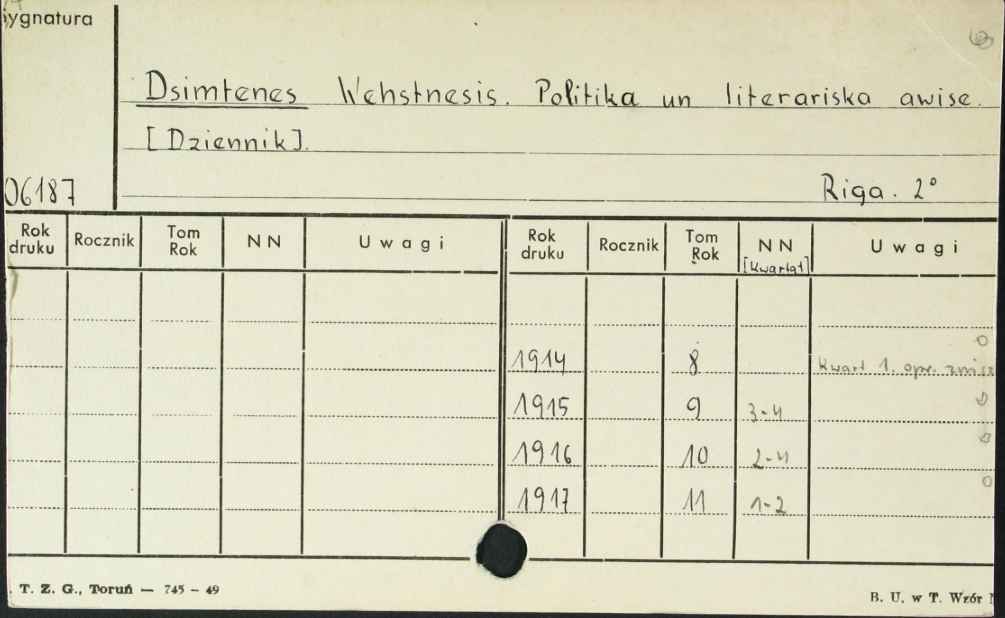 ygnatura
Dsimtenes Wehstnesis. Politika un literariska awise.
[Dziennik].
06187
Riga. 2°
Rok druku Rocznik Tom Rok NN Uwagi Rok druku Rocznik Tom Rok NN [Kwartał] Uwagi
1914 8 Kwart 1. opr.
1915 9 3-4
1916 10 2-4
1917 11 1-2
. T. Z. G., Toruń — 745 - 49
B. U. w T. Wzór